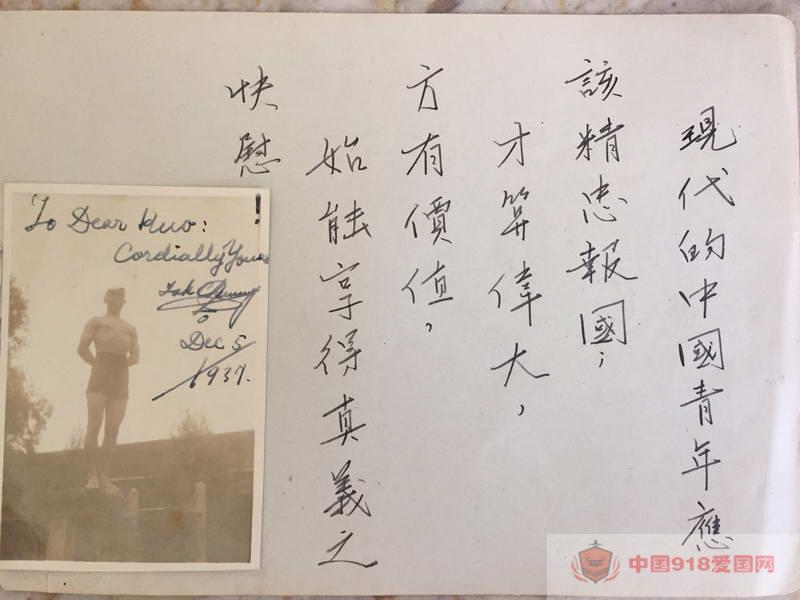 現代的中國青年應
該精忠報國；
才算偉大，
方有價值，
始能享得真義之
快慰！
To Dear Kuo:
Cordially Yours
Dec 5
1937.
中国918爱国网